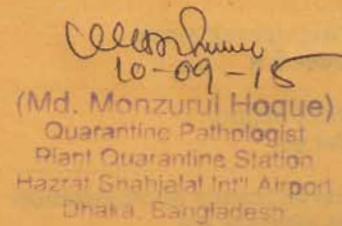 10-09-15
(Md. Monzurul Hoque)
Quarantine Pathologist
Plant Quarantine Station
Hazrat Shahjalal Int'l Airport
Dhaka, Bangladesh